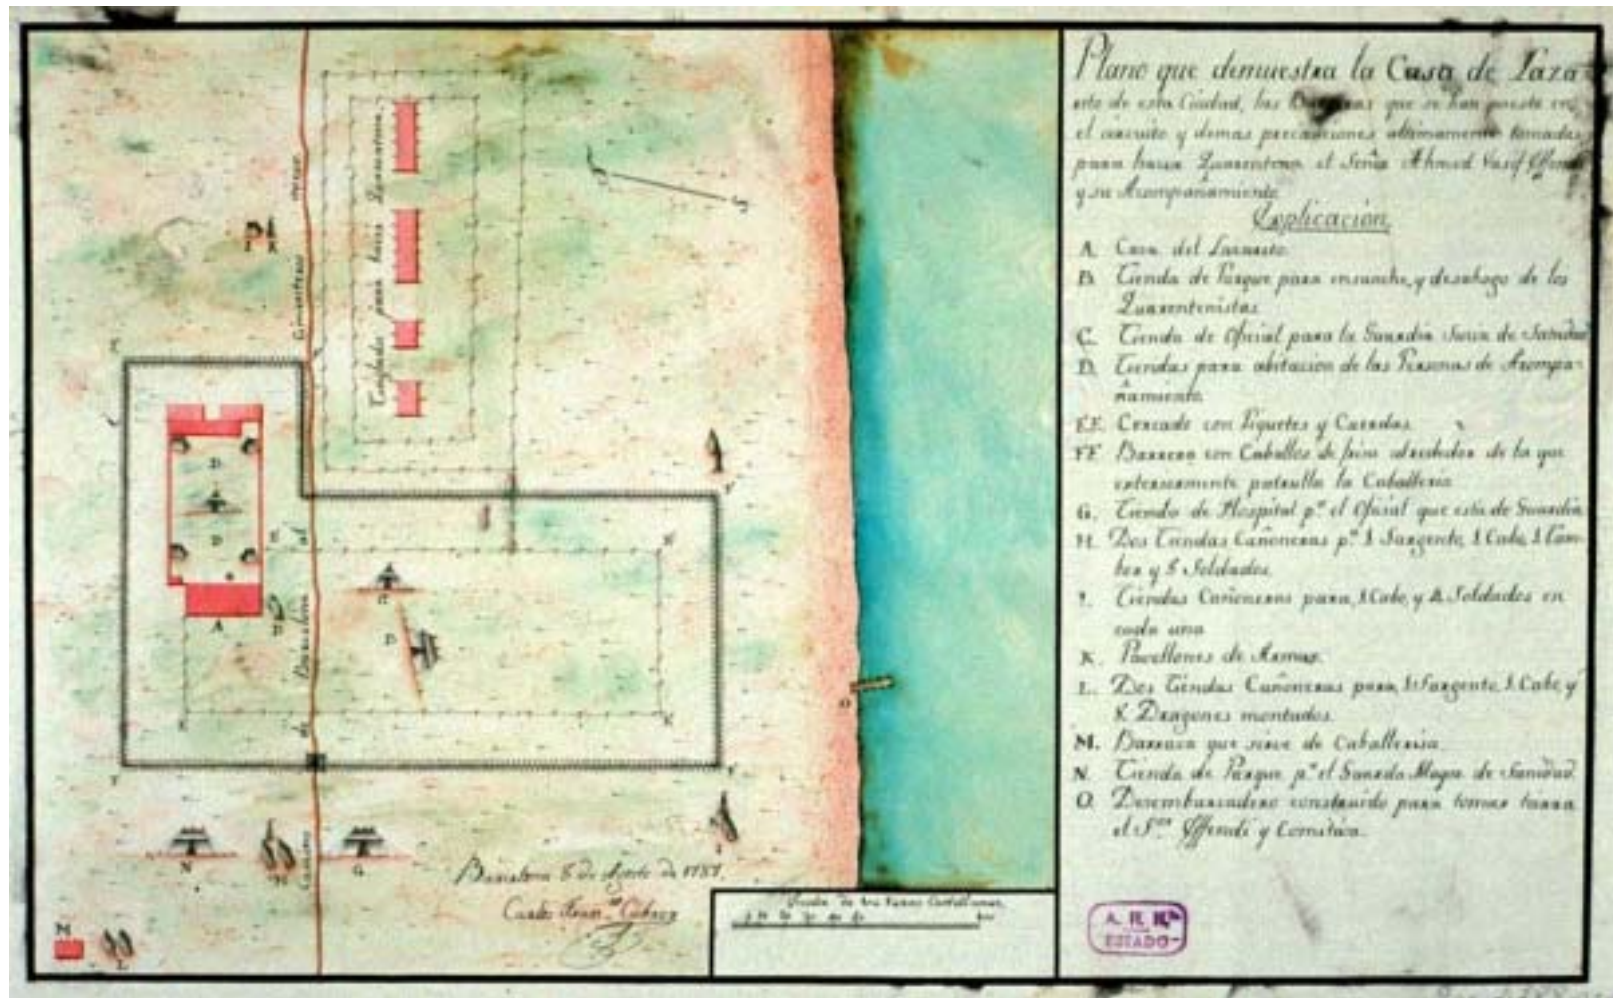 Plano que demuestra la Casa de Laza
reto de esta Ciudad, las Barreras que se han puesto en
el circuito y demas precauciones ultimamente tomadas
para hacer Quarentena el Señor Ahmed Vasif Effendi
y su Acompañamiento.
Explicacion
A. Casa del Lazareto.
B. Tienda de Parque para ensanche, y desahogo de los
Quarentenistas.
C. Tienda de Oficial para la Guardia Sucia de Sanidad
D. Tiendas para abitacion de las Personas de Acompa-
ñamiento.
EE. Cercado con Piquetes y Cuerdas.
FF. Barrera con Caballos de frisa alrededor de la que
exteriormente patrulla la Caballeria
G. Tienda de Hospital pª el Oficial que està de Guardia
H. Dos Tiendas Cañoneras pª 1 Sargento, 1 Cabo, 1 Tam-
bor y 8 Soldados.
I. Tiendas Cañoneras para 1 Cabo, y 4 Soldados en
cada una
K. Pavellones de Armas.
L. Dos Tiendas Cañoneras para 1 Sargento, 1 Cabo, y
8 Dragones montados.
M. Barraca que sirve de Caballeriza.
N. Tienda de Parque pª el Guarda Mayor de Sanidad.
O. Desembarcadero construido para tomar tierra
el Sor Effendi y Comitiva.
A. H. N.
ESTADO
Tinglados para hacer Quarentena
Camino de Barcelona al Cementerio nuevo
S
D
D
A
B
D
K
K
O
N
H
G
I
M
L
Barcelona 8 de Agosto de 1787.
Escala de Varas Castellanas